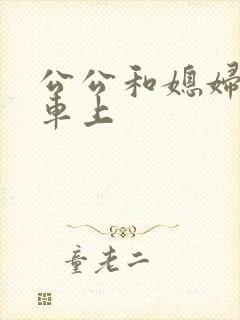 公公和媳妇
車上
童老二